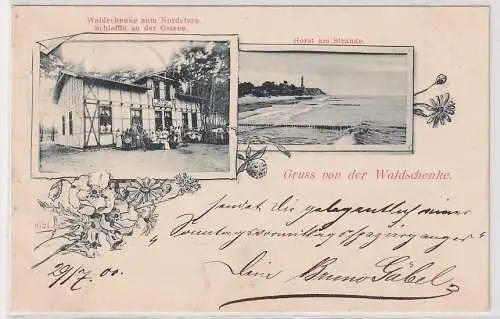 Waldschenke zum Nordstern.
Schleffin an der Ostsee.
Horst am Strande.
Gruss von der Waldschenke.
sendet Dir gelegentlich einer
"Sonntagsvormittags
29/7. 00.
Dein Bruno Göbel